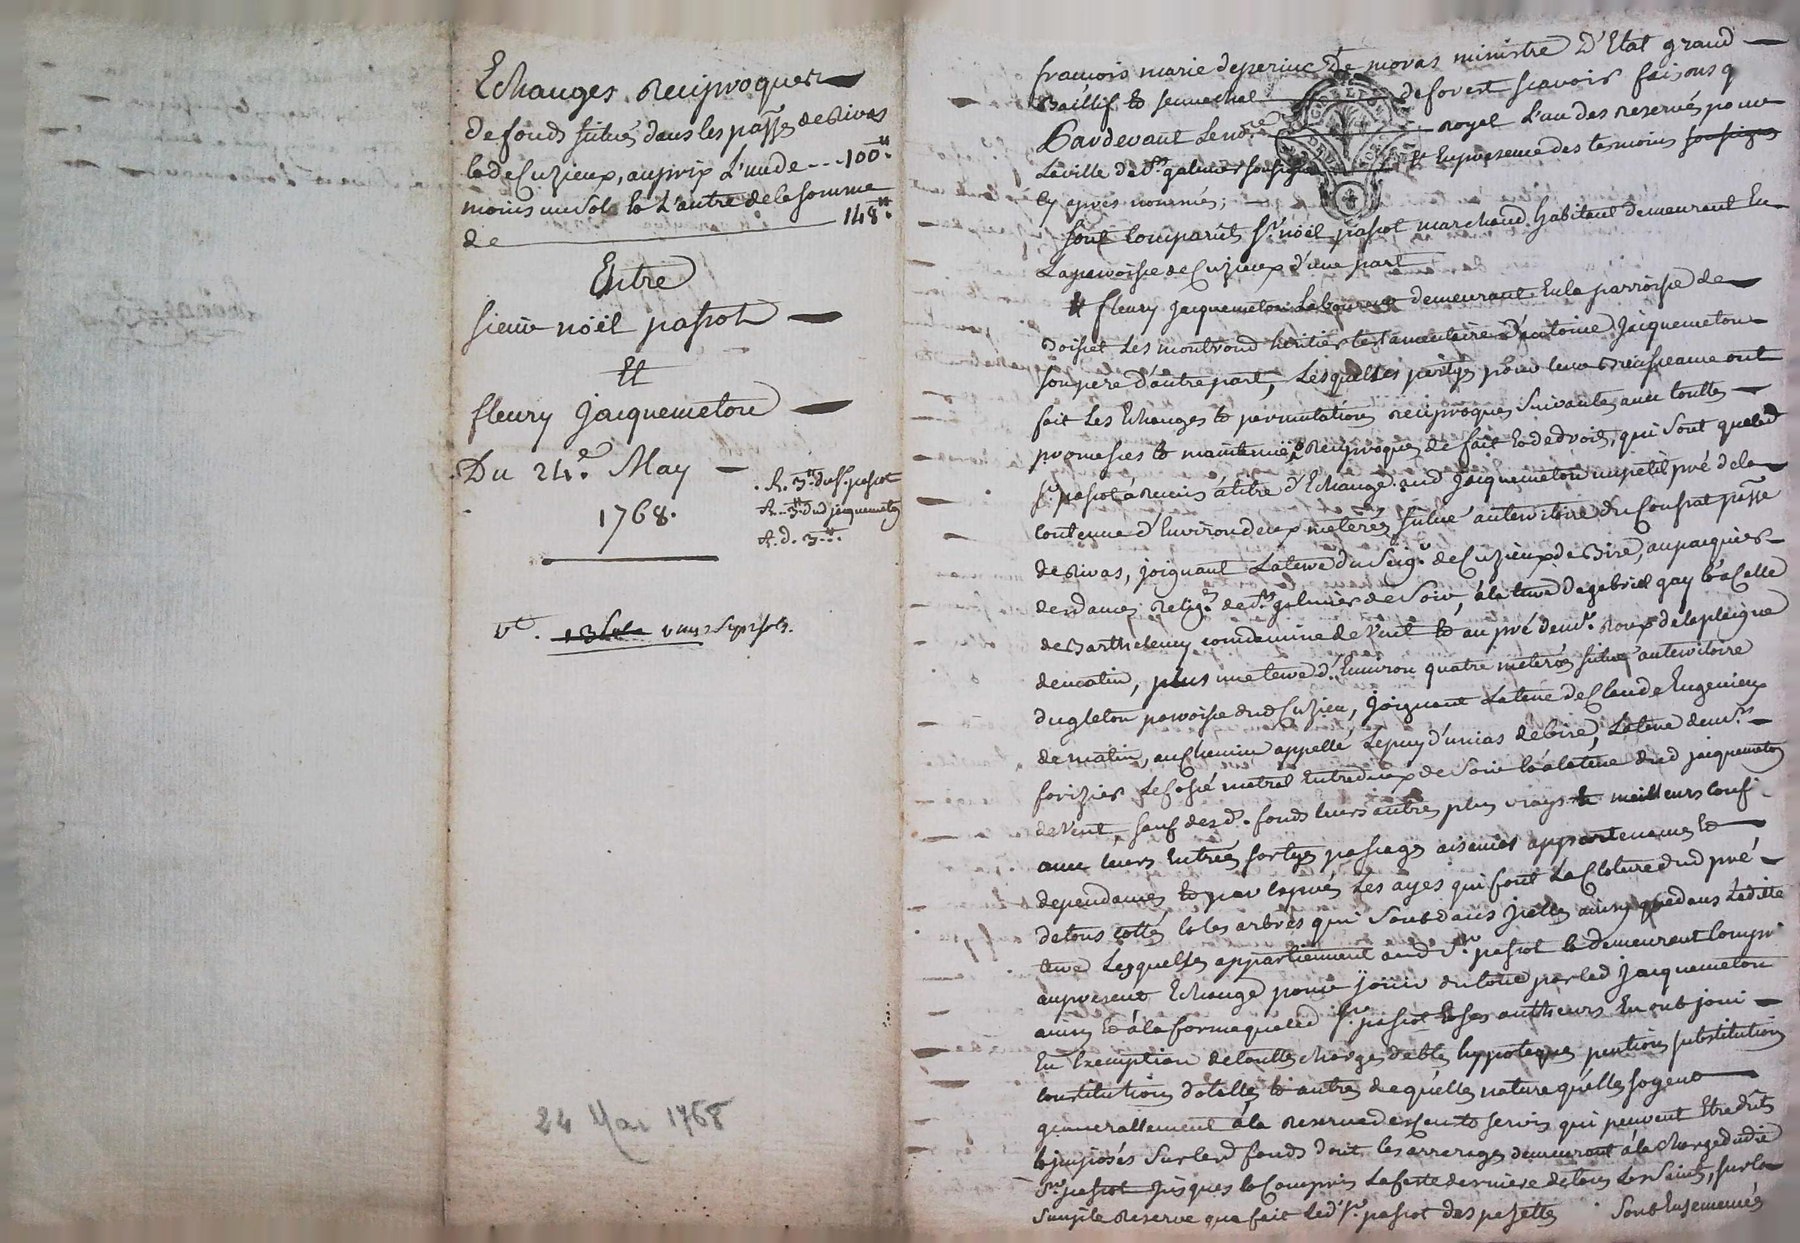 Echanges reciproques
de fonds situés dans les pa͠sses de Rivas
et de Cuzieux, au prix L'un de --- 100.ᵗᵗ
moins un sol et L'autre de la somme
de 148.ᵗᵗ
Entre
sieur nöel passot
Et
fleury Jacquemeton
Du 24.e May
1768.
. R. 3.ᵗᵗ du Sr. passot
R. 3.ᵗᵗ dud jacquemeton
R. d. 3.ᵗᵗ
24 Mai 1768
francois marie de peirinc De moras ministre D'Etat grand
Baillif et sennechal de forest scavoir faisons q
Pardevant Le nore royal L'un des reservés pour
La ville de St. galmier soussigné Et En presence des temoins soussignes
Cy après nommés;
sont comparus Sr. nöel passot marchand habitant demeurant En
La parroisse de Cuzieux d'une part
Et fleury jacquemeton Laboureur demeurant En la parroisse de
Boisset Les montrond heritier testamentaire d'antoine Jacquemeton
son pere d'autre part, Lesquelles partyes pour leur bienseance ont
fait Les Echanges et permutations reciproques suivantes avec touttes
promesses et maintenües Reciproques de fait et de droit, qui sont que led
Sr. passot à remis à titre d'Echange aud Jacquemeton un petit pré de la
contenue d'Environ deux meterés situé au territoire du Consrat pa͠sse
de Rivas, joignant La terre du Seigr. de Cuzieux de Bize, au paquier
des dames Religes. de St. galmier de Soir, à la terre de gabriel gay et à Celle
de Barthelemy condamine de Vent et au pré de mr. Roux de la plaigne
de matin, plus une terre d'Environ quatre meterés situé au territoire
du gleton parroisse dud Cuzieu, Joignant La terre de Claude Eugenieux
de matin, au Chemin appellé Le puy d'unias de bize, La terre de mrs.
forizier Le fossé mitral Entredeux de Soir et à la terre dud jacquemeton
de Vent, sauf desd. fonds leurs autres plus vrays et meilleurs conf
avec leurs Entrées sortyes passages aisances appartenances et
dependances et par Exprés Les ayes qui font La Cloture dud pré
de tous cottés et les arbres qui sont dans Jcelles ainsy que dans Laditte
terre Lesquelles appartiennent aud Sr. passot et demeurent compris
au present Echange pour Joüir du tout par led Jacquemeton
ainsy et à la forme que led Sr. passot et ses autheurs En ont joui
En Exemption de touttes charges debtes hypoteques pentions substitutions
constitutions dotalles et autres de quelles nature qu'elles soyent
generallement à la reserve des Cens et servis qui peuvent Etre dûs
et imposés sur lesd fonds dont les arrerages demeurent à la charge dudit
Sr. passot jusques et Compris La feste derniere de tous Les Saints, sur la
simple reserve que fait led Sr. passot des pesettes sont Ensemencés